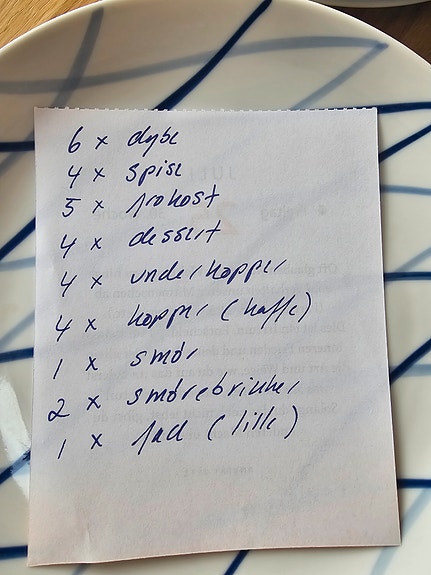 6 x dybe
4 x spise
5 x frokost
4 x dessert
4 x underkopper
4 x kopper (kaffe)
1 x smør
2 x smørebrikker
1 x fad (lille)